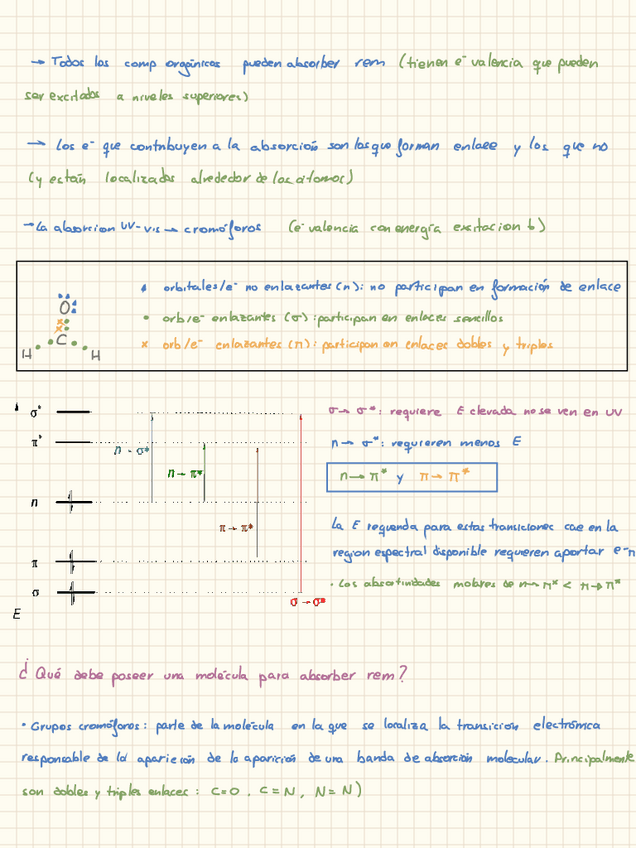 → Todos los comp orgánicos pueden absorber rem (tienen e⁻ valencia que pueden
ser excitados a niveles superiores)
→ los e⁻ que contribuyen a la absorción son los que forman enlace y los que no
(y están localizados alrededor de los átomos)
→ La absorcion UV-vis → cromóforos (e⁻ valencia con energía excitacion b)
orbitales/e⁻ no enlazantes (n): no participan en formación de enlace
• orb/e⁻ enlazantes (σ): participan en enlaces sencillos
x orb/e⁻ enlazantes (π): participan en enlaces dobles y triples
O
C
H H
σ*
π*
n
π
σ
E
n → σ*
n → π*
π → π*
σ → σ*
σ → σ*: requiere E elevada no se ven en UV
n → σ*: requieren menos E
n → π* y π → π*
La E requerida para estas transiciones cae en la
region espectral disponible requieren aportar e⁻n
· Las absortividades molares de n → π* < π → π*
¿Qué debe poseer una molécula para absorber rem?
· Grupos cromóforos: parte de la molécula en la que se localiza la transición electrónica
responsable de la aparición de la aparición de una banda de absorción molecular. Principalmente
son dobles y triples enlaces: C=O, C=N, N=N)